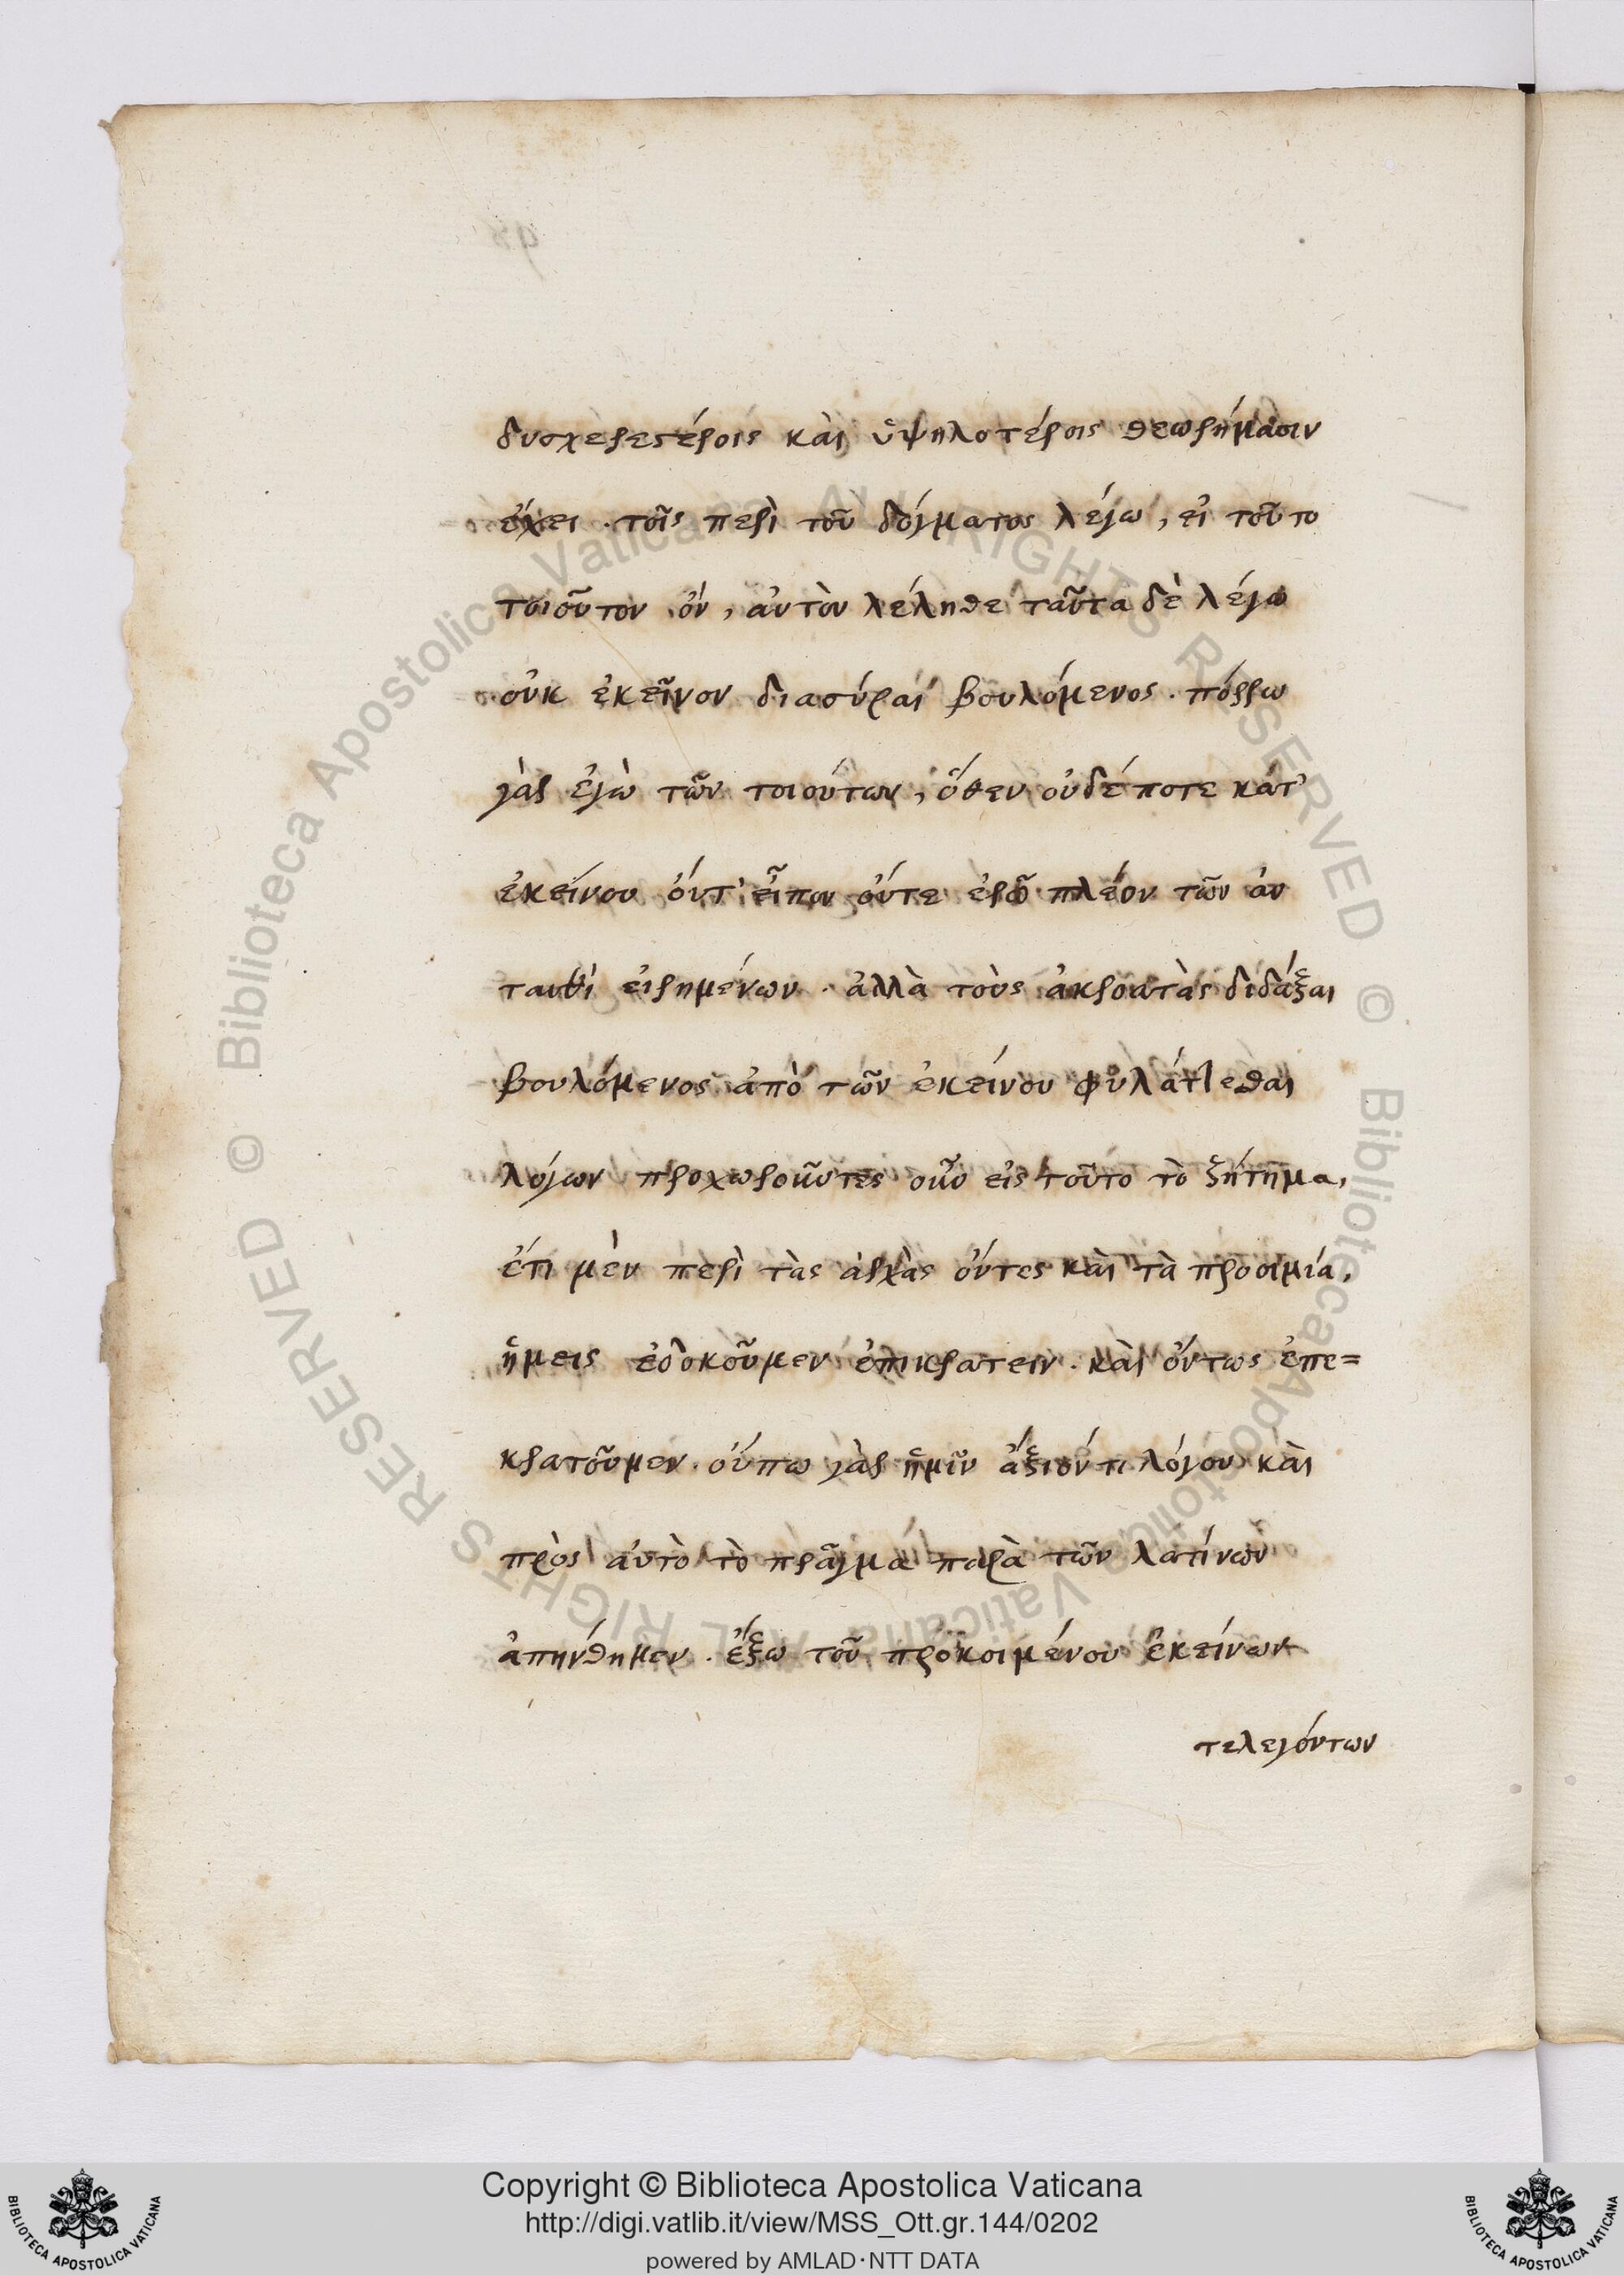 δυσχερεστέροις καὶ ὑψηλοτέροις θεωρήμασιν
ἔχει · τοῖς περὶ τοῦ δόγματος λέγω, εἰ τοῦτο
τοιοῦτον ὄν, αὐτὸν λέληθε ταῦτα δὲ λέγω
οὐκ ἐκεῖνον διασύραι βουλόμενος · πόρρω
γὰρ ἐγὼ τῶν τοιούτων, ὅθεν οὐδέποτε κατ'
ἐκείνου οὔτ' εἶπον οὔτε ἐρῶ πλέον τῶν ἀν
ταυθὶ εἰρημένων · ἀλλὰ τοὺς ἀκροατὰς διδάξαι
βουλόμενος ἀπὸ τῶν ἐκείνου φυλάττεσθαι
λόγων προχωροῦντες οὖν εἰς τοῦτο τὸ ζήτημα,
ἔτι μὲν περὶ τὰς ἀρχὰς ὄντες καὶ τὰ προοιμία,
ἡμεῖς ἐδοκοῦμεν ἐπικρατειν · καὶ ὄντως ἐπε=
κρατοῦμεν · οὔπω γὰρ ἡμῖν ἄξιόν τι λόγου καὶ
πρὸς αὐτὸ τὸ πρᾶγμα παρὰ τῶν λατίνων
ἀπηνθημεν · ἔξω τοῦ προκοιμένου ἐκείνων
τελεγόντων
Copyright © Biblioteca Apostolica Vaticana
http://digi.vatlib.it/view/MSS_Ott.gr.144/0202
powered by AMLAD·NTT DATA
BIBLIOTECA APOSTOLICA VATICANA
BIBLIOTECA APOSTOLICA VATICANA
© Biblioteca Apostolica Vaticana ALL RIGHTS RESERVED
© Biblioteca Apostolica Vaticana ALL RIGHTS RESERVED